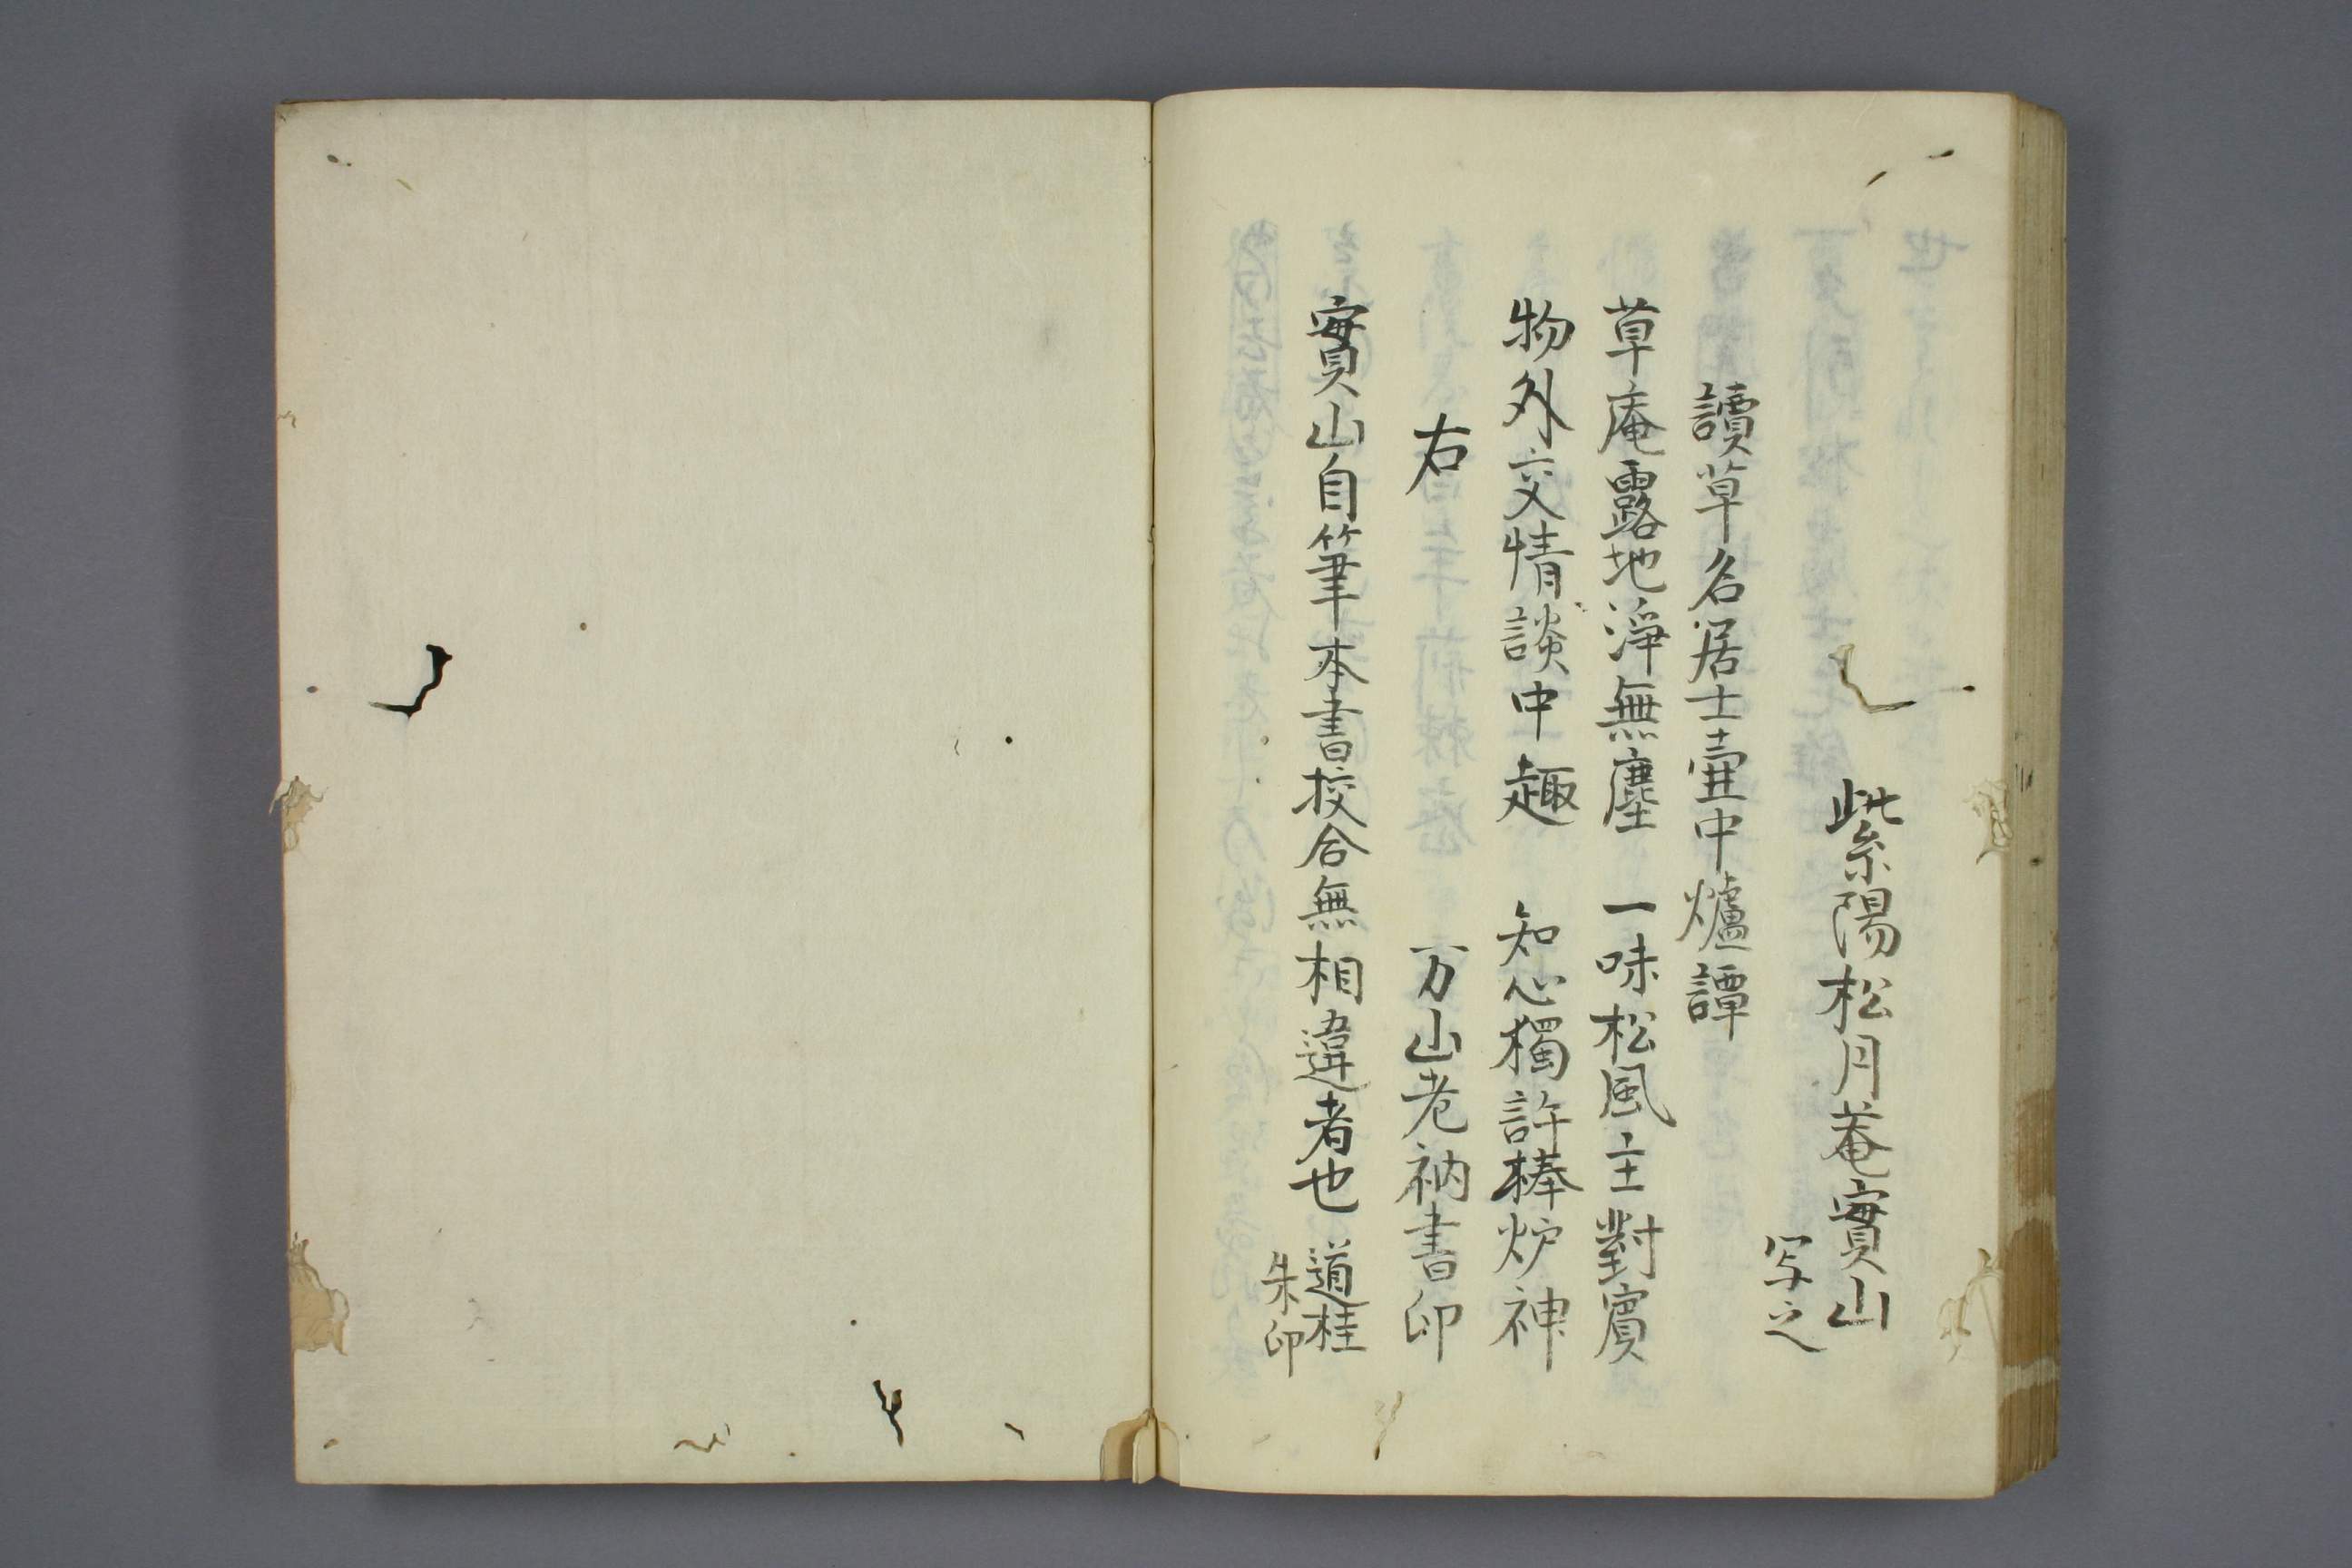 紫陽松月菴實山
写之
讀草名居士壷中爐譚
草庵露地淨無塵　一味松風主對賓
物外交情談中趣　知心獨許棒炉神
右　万山老衲書印
實山自筆本書挍合無相違者也　道桂
朱印